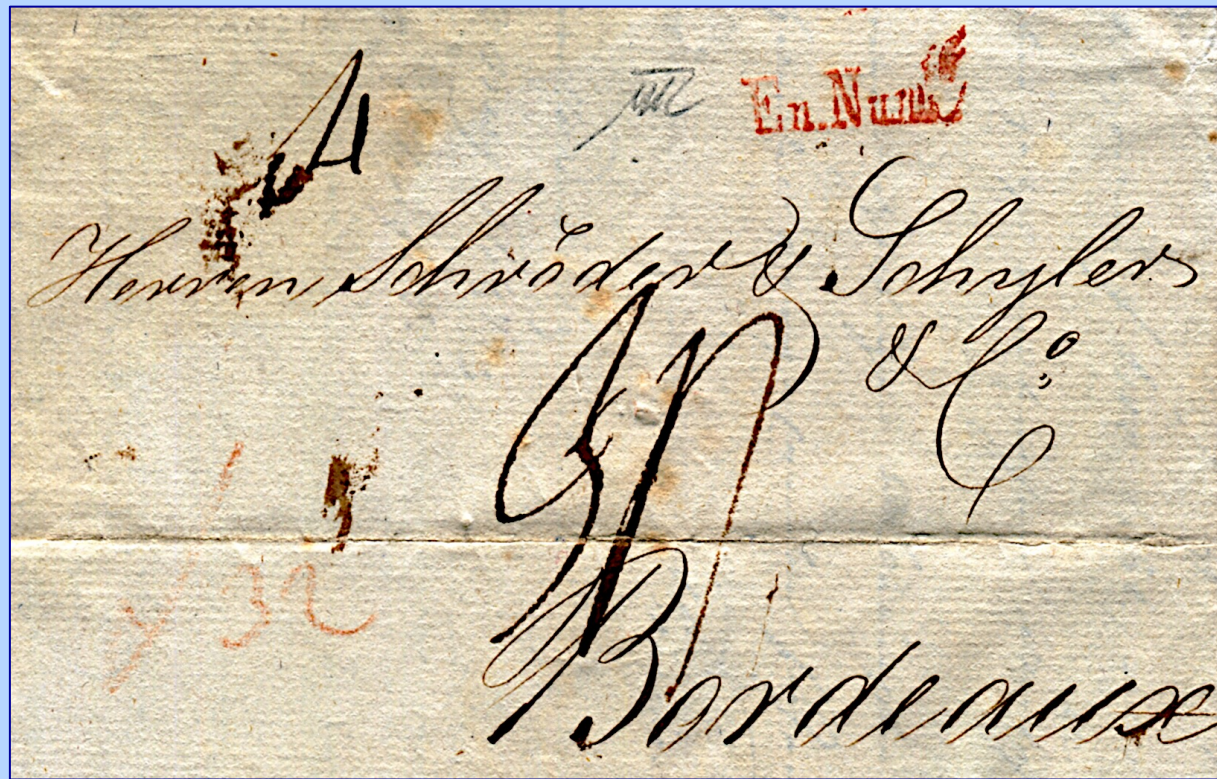 En. Num
Herren Schröder & Schyler
& Co.
Bordeaux
32